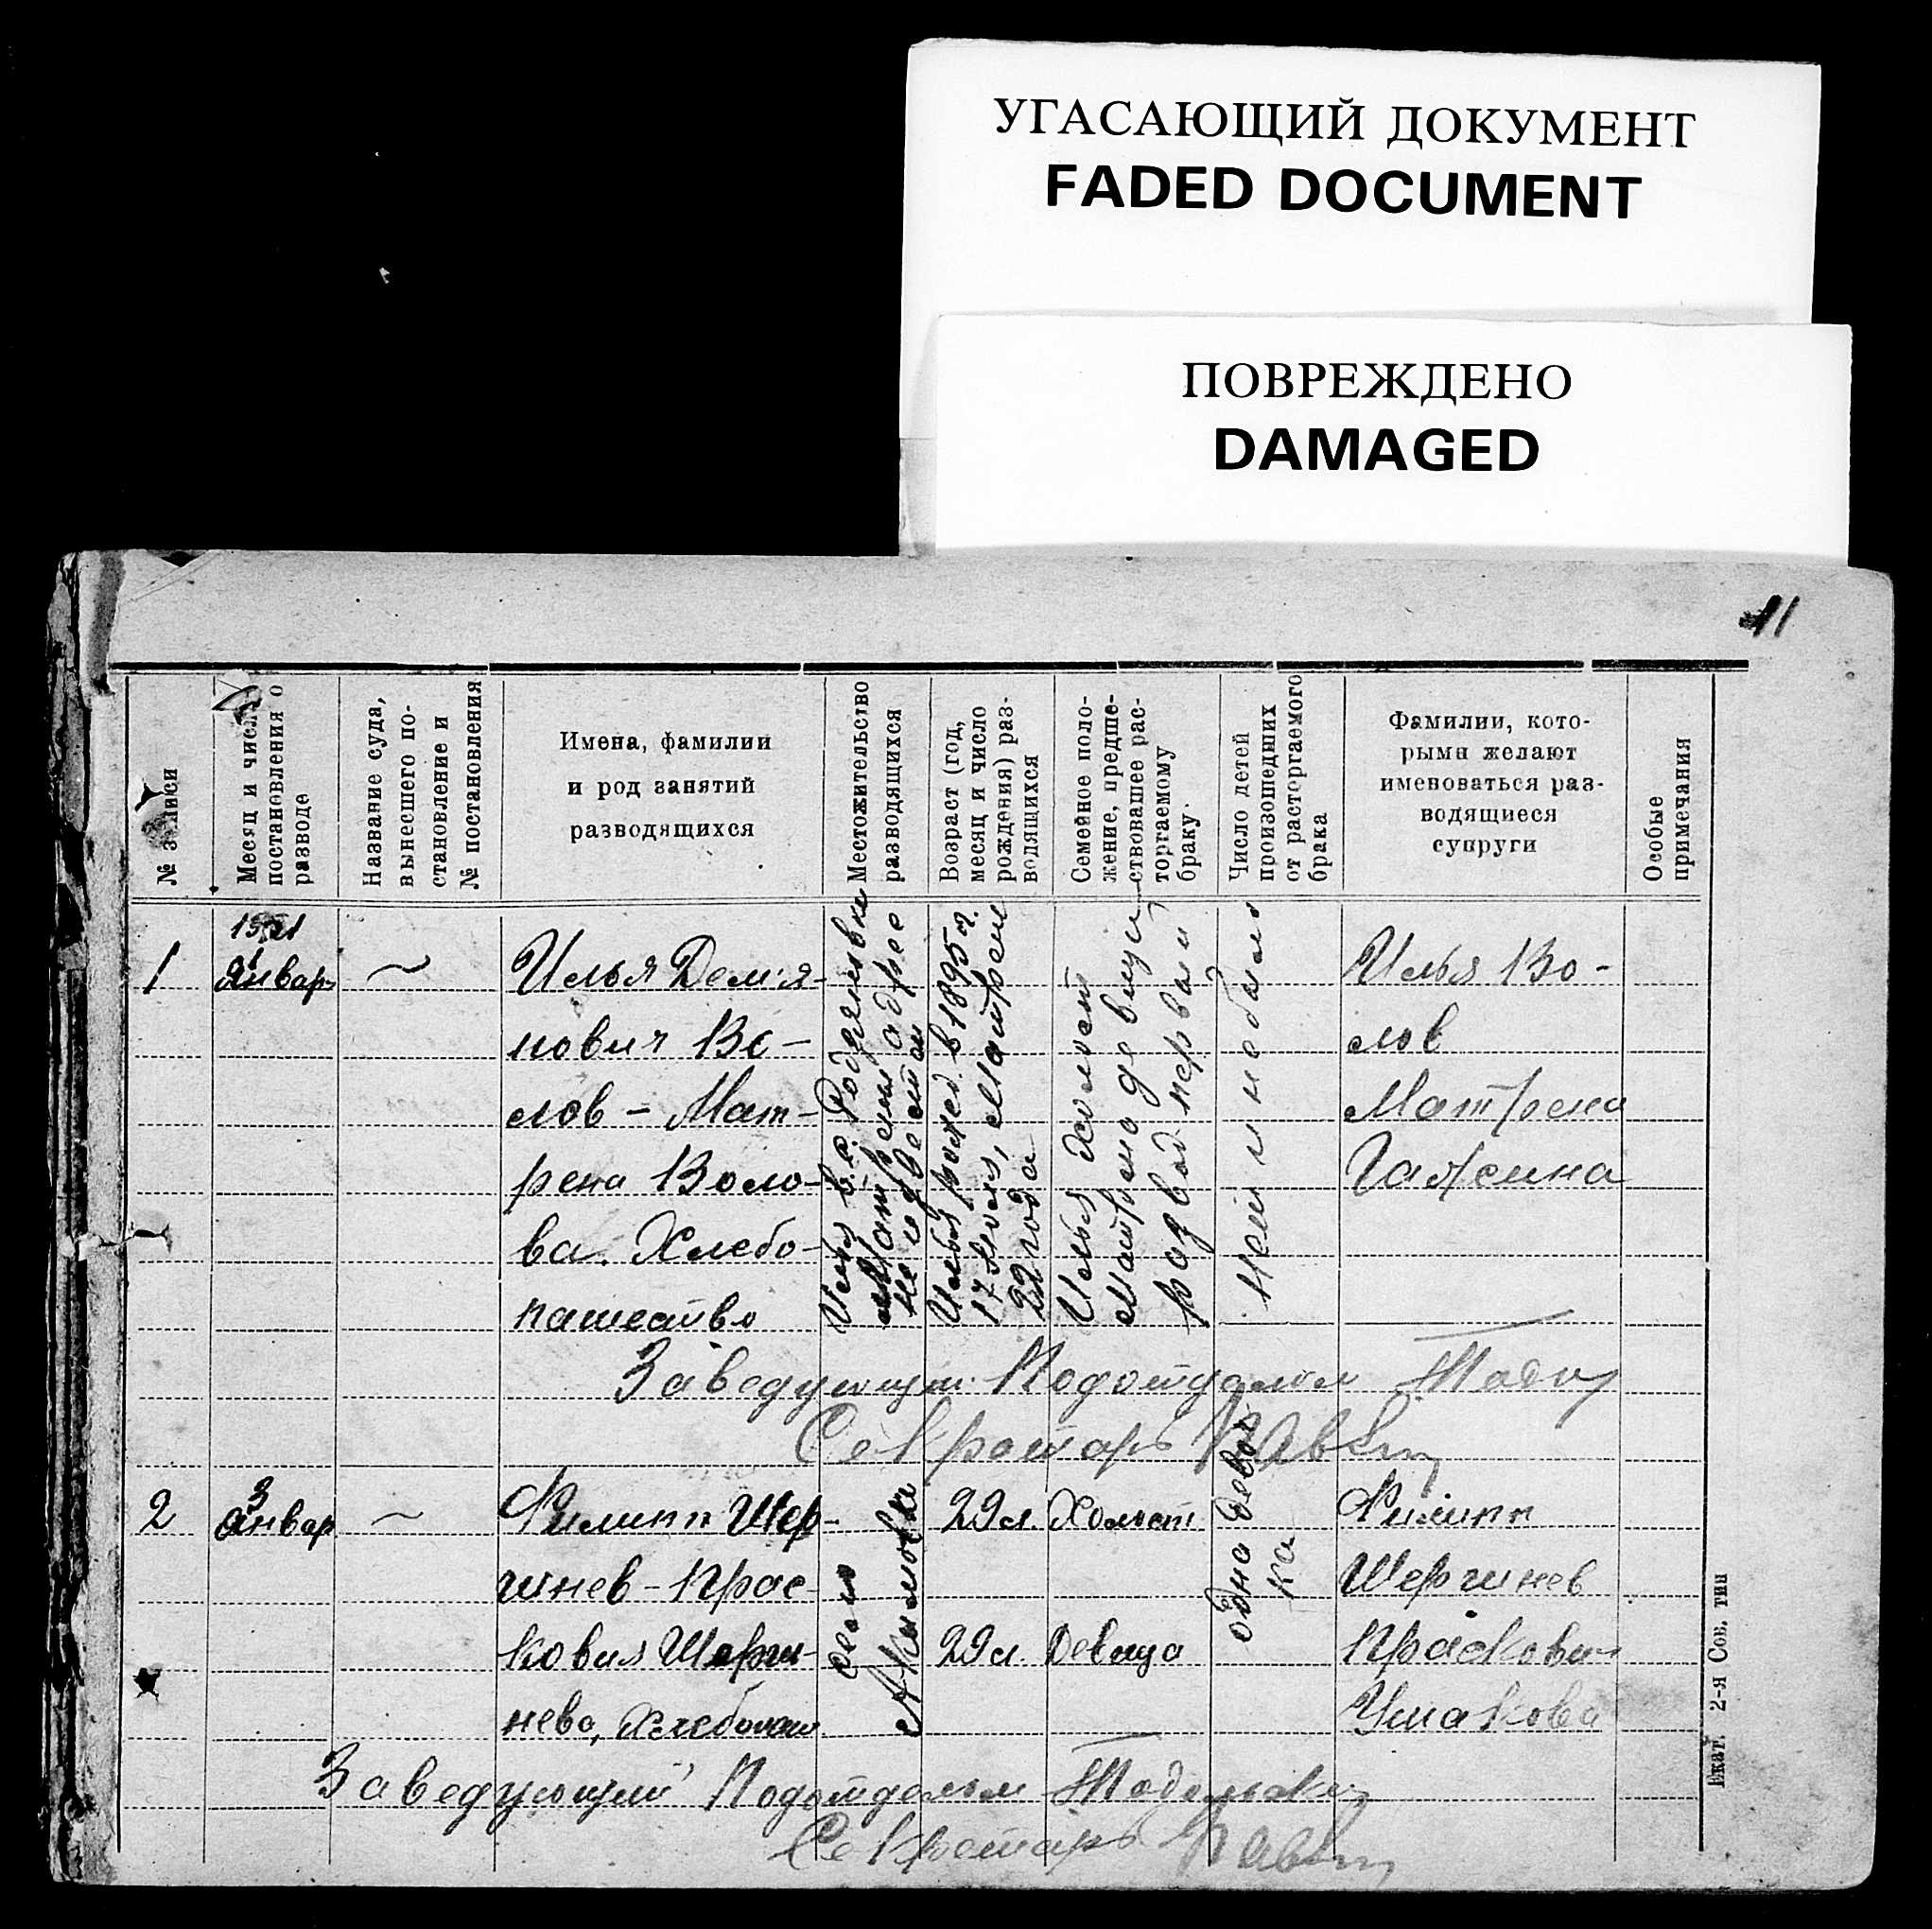 УГАСАЮЩИЙ ДОКУМЕНТ
FADED DOCUMENT
ПОВРЕЖДЕНО
DAMAGED
11
№ записи
Месяц и число
постановления о
разводе
Название суда,
вынесшего по-
становление и
№ постановления
Имена, фамилии
и род занятий
разводящихся
Местожительство
разводящихся
Возраст (год,
месяц и число
рождения) раз-
водящихся
Семейное поло-
жение, предше-
ствовавшее рас-
торгаемому
браку.
Число детей
происшедших
от расторгаемого
брака
Фамилии, кото-
рыми желают
именоваться раз-
водящиеся
супруги
Особые
примечания
1
1921
Январ
~
Илья Демья-
нович Во-
лов - Мат-
рена Воло-
ва. Хлебо-
пашество
Илья в с.
Матрены адрес
неизвестен
Илья рожд. в 1895 г.
17 Июля, Матрене
22 года
Илья холост
Матрена девица
развод первый
Нет и не было
Илья Во-
лов
Матрена
Заведующий Подотделом
Секретарь
2
3
Январ
~
Филипп Шер-
гинев - Прас-
ковия Шерги-
нева, Хлебопаш
Село
Акимовка
29 л.
29 л.
Холост
Девица
одна девоч
ка
Филипп
Шергинев
Прасковия
Ушакова
Заведующий Подотделом
Секретарь
Екат. 2-я Сов. тип